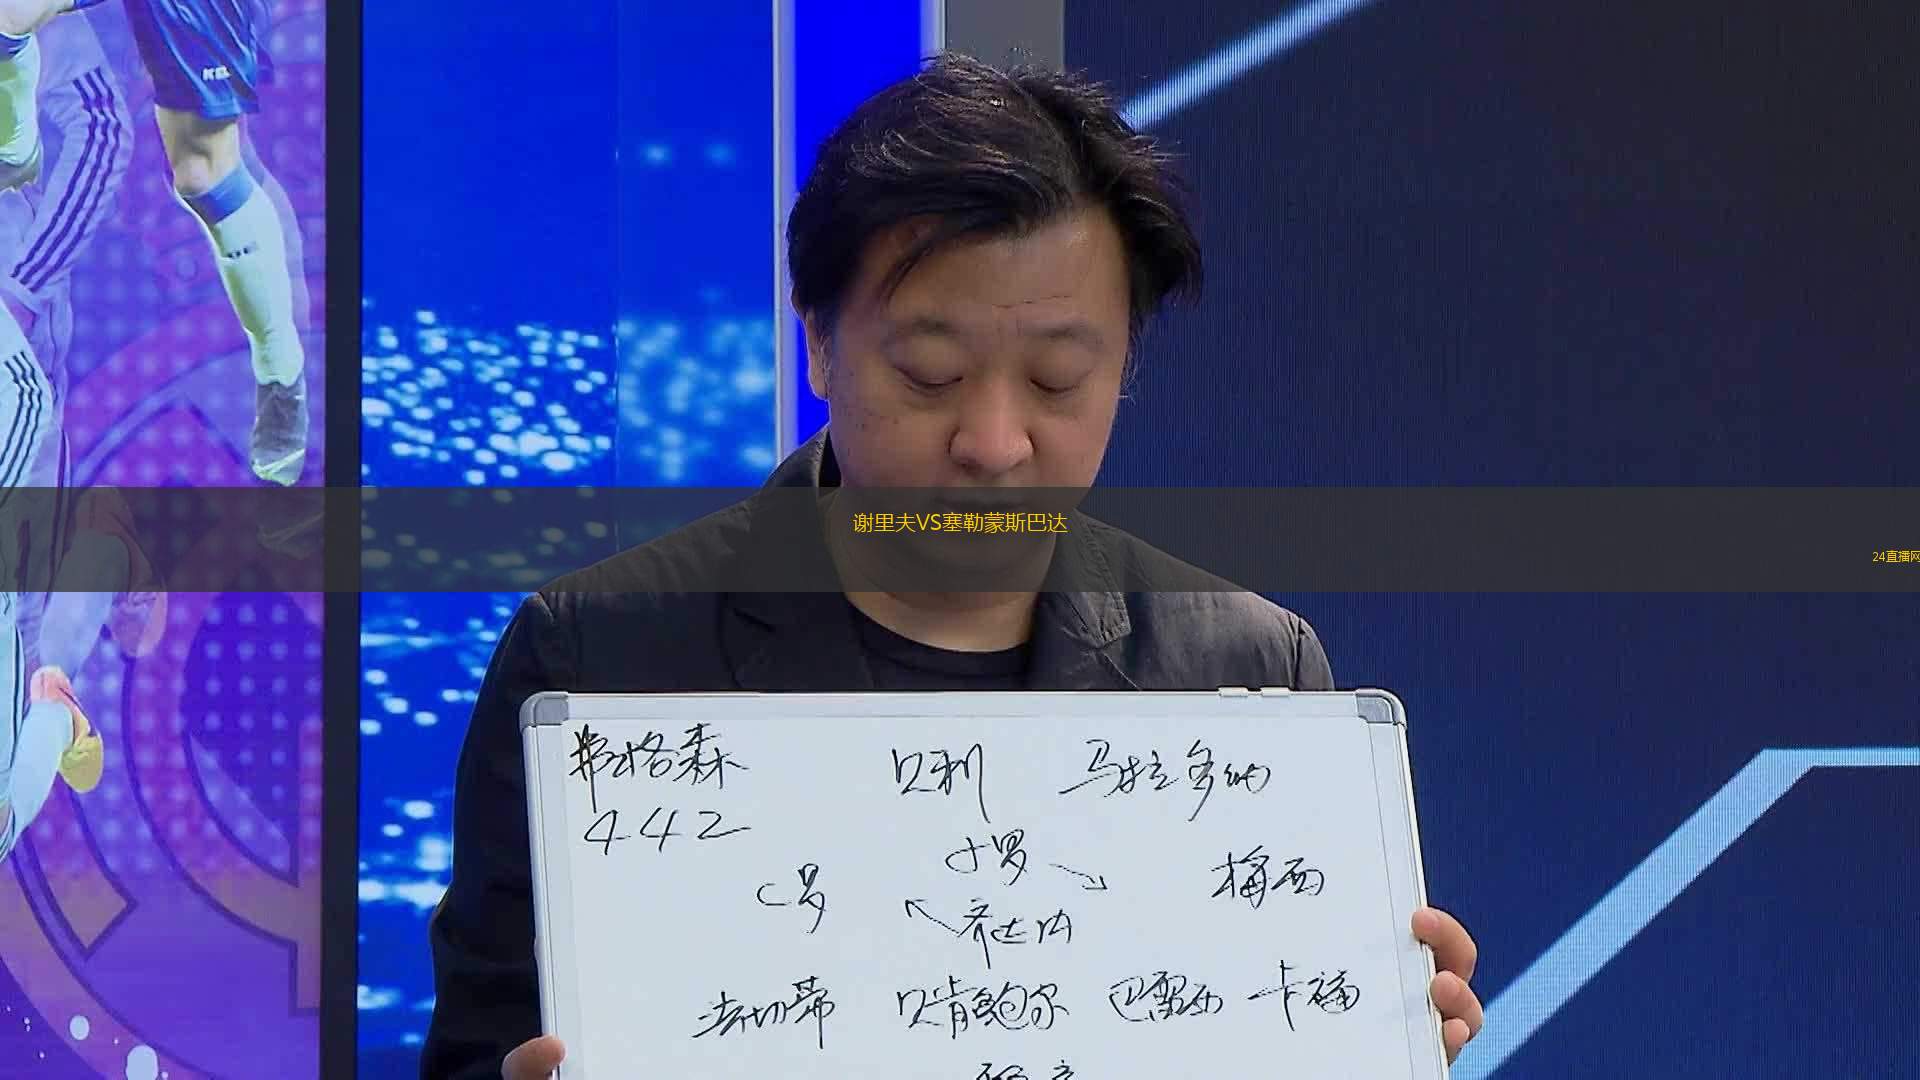 KEL
谢里夫VS塞勒蒙斯巴达
24直播网
弗格森 贝利 马拉多纳
442
小罗
C罗 梅西
齐达内
法切蒂 贝肯鲍尔 巴雷西 卡福